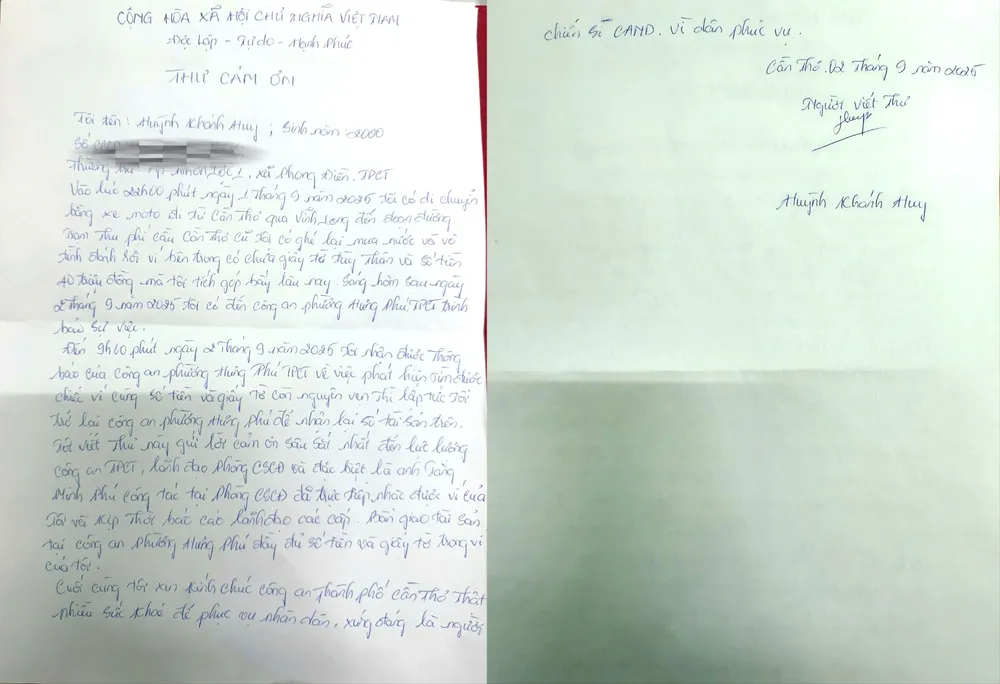 CỘNG HÒA XÃ HỘI CHỦ NGHĨA VIỆT NAM
Độc Lập - Tự do - Hạnh Phúc
THƯ CẢM ƠN
Tôi tên : Huỳnh Khánh Huy ; Sinh năm 2000
Số CCCD
Thường trú ấp Nhơn Lộc 1, xã Phong Điền, TPCT
Vào lúc 22h40 phút ngày 1 tháng 9 năm 2025 tôi có di chuyển
bằng xe moto đi từ Cần Thơ qua Vĩnh Long đến đoạn đường
trạm thu phí cầu Cần Thơ cũ tôi có ghé lại mua nước và vô
tình đánh rơi ví bên trong có chứa giấy tờ tùy thân và số tiền
40 triệu đồng mà tôi tích góp bấy lâu nay. Sáng hôm sau ngày
2 tháng 9 năm 2025 tôi có đến công an phường Hưng Phú, TPCT trình
báo sự việc.
Đến 9h40 phút ngày 2 tháng 9 năm 2025 tôi nhận được thông
báo của công an phường Hưng Phú TPCT về việc phát hiện tìm được
chiếc ví cùng số tiền và giấy tờ còn nguyên vẹn thì lập tức tôi
trở lại công an phường Hưng Phú để nhận lại số tài sản trên.
Tôi viết thư này gửi lời cảm ơn sâu sắc nhất đến lực lượng
công an TPCT, lãnh đạo Phòng CSCĐ và đặc biệt là anh Tăng
Minh Phú công tác tại Phòng CSCĐ đã trực tiếp nhặt được ví của
tôi và kịp thời báo cáo lãnh đạo các cấp. Bàn giao tài sản
tại công an phường Hưng Phú đầy đủ số tiền và giấy tờ trong ví
của tôi.
Cuối cùng tôi xin kính chúc công an thành phố Cần Thơ thật
nhiều sức khoẻ để phục vụ nhân dân, xứng đáng là người
chiến sĩ CAND. Vì dân phục vụ.
Cần Thơ, 02 tháng 9 năm 2025
Người viết thư
Huy
Huỳnh Khánh Huy